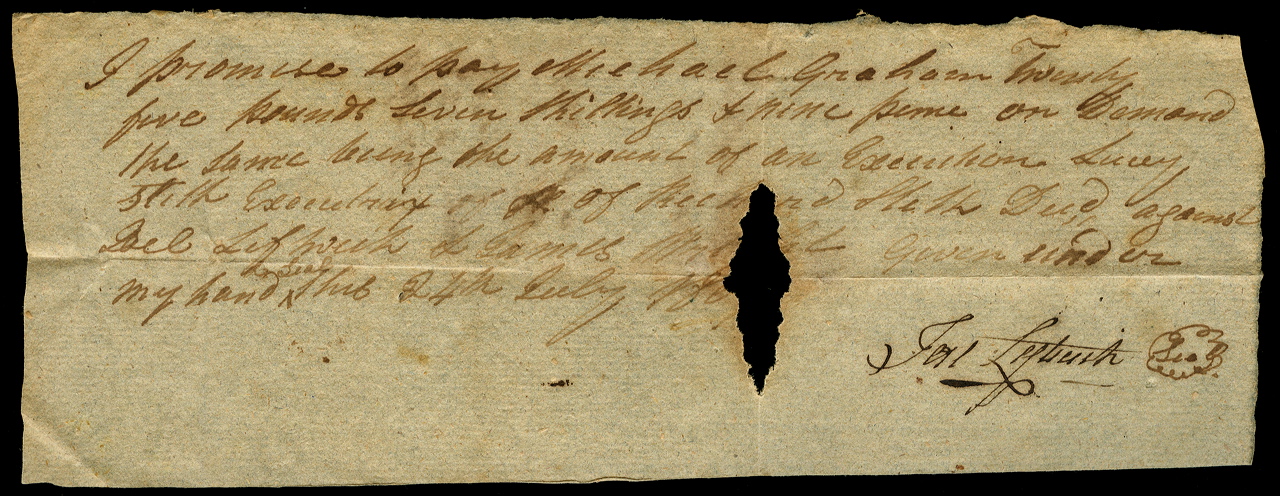 I promise to pay Michael Graham Twenty
five pounds Seven Shillings & nine pence on Demand
the same being the amount of an Execution Lucy
Stith Executrix of of Richard Stith Decd, against
Joel Leftwich & James Given under
my hand & Seal this 24th July
Joel Leftwich Seal